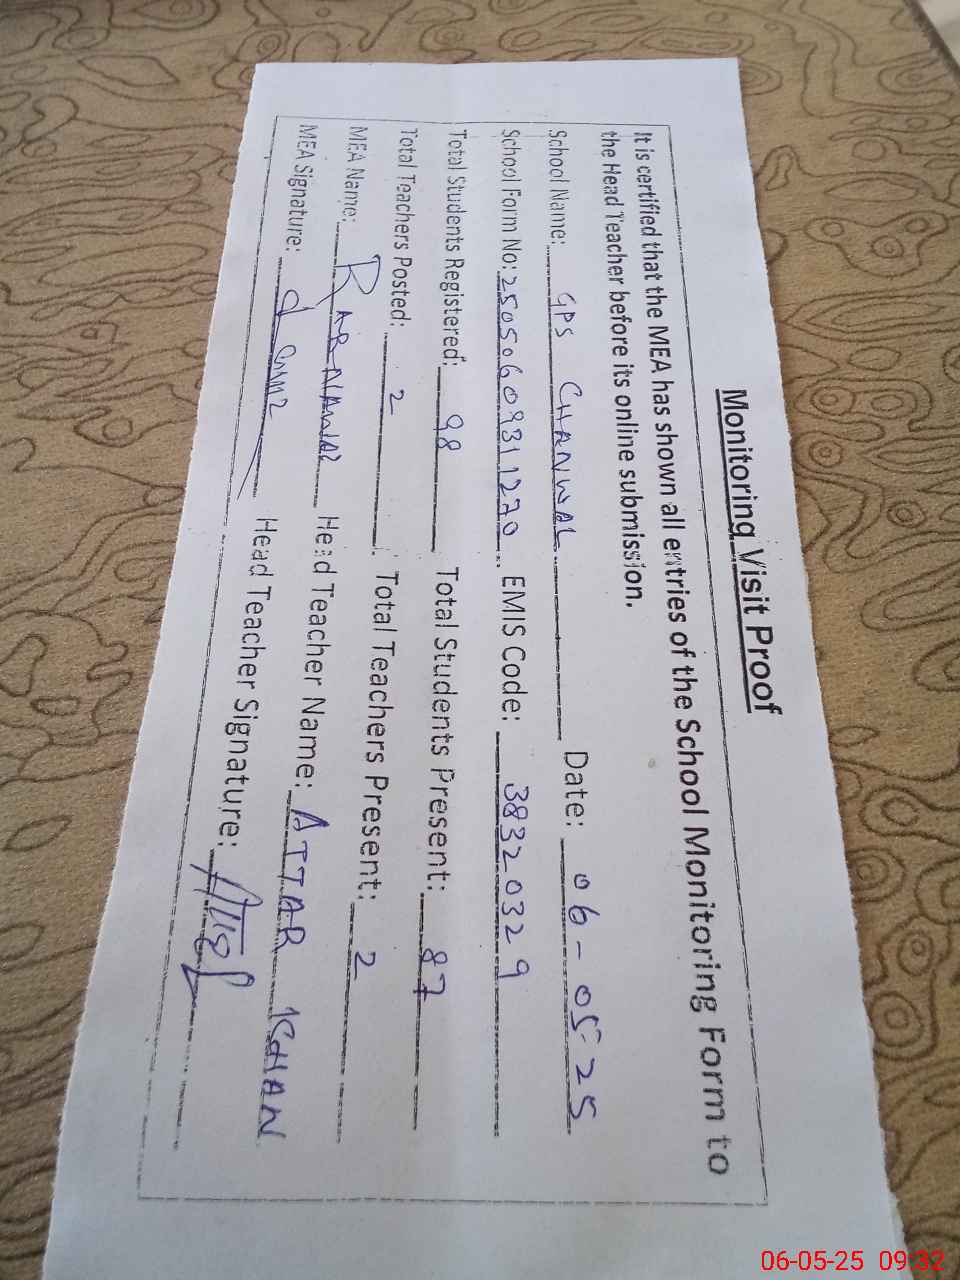 Monitoring Visit Proof
It is certified that the MEA has shown all entries of the School Monitoring Form to
the Head Teacher before its online submission.
School Name: GPS CHANWAL Date: 06-05-25
School Form No: 25050609311270 EMIS Code: 38320329
Total Students Registered: 98 Total Students Present: 87
Total Teachers Posted: 2 Total Teachers Present: 2
MEA Name: Head Teacher Name: ATTAR KHAN
MEA Signature: Head Teacher Signature:
06-05-25 09:32